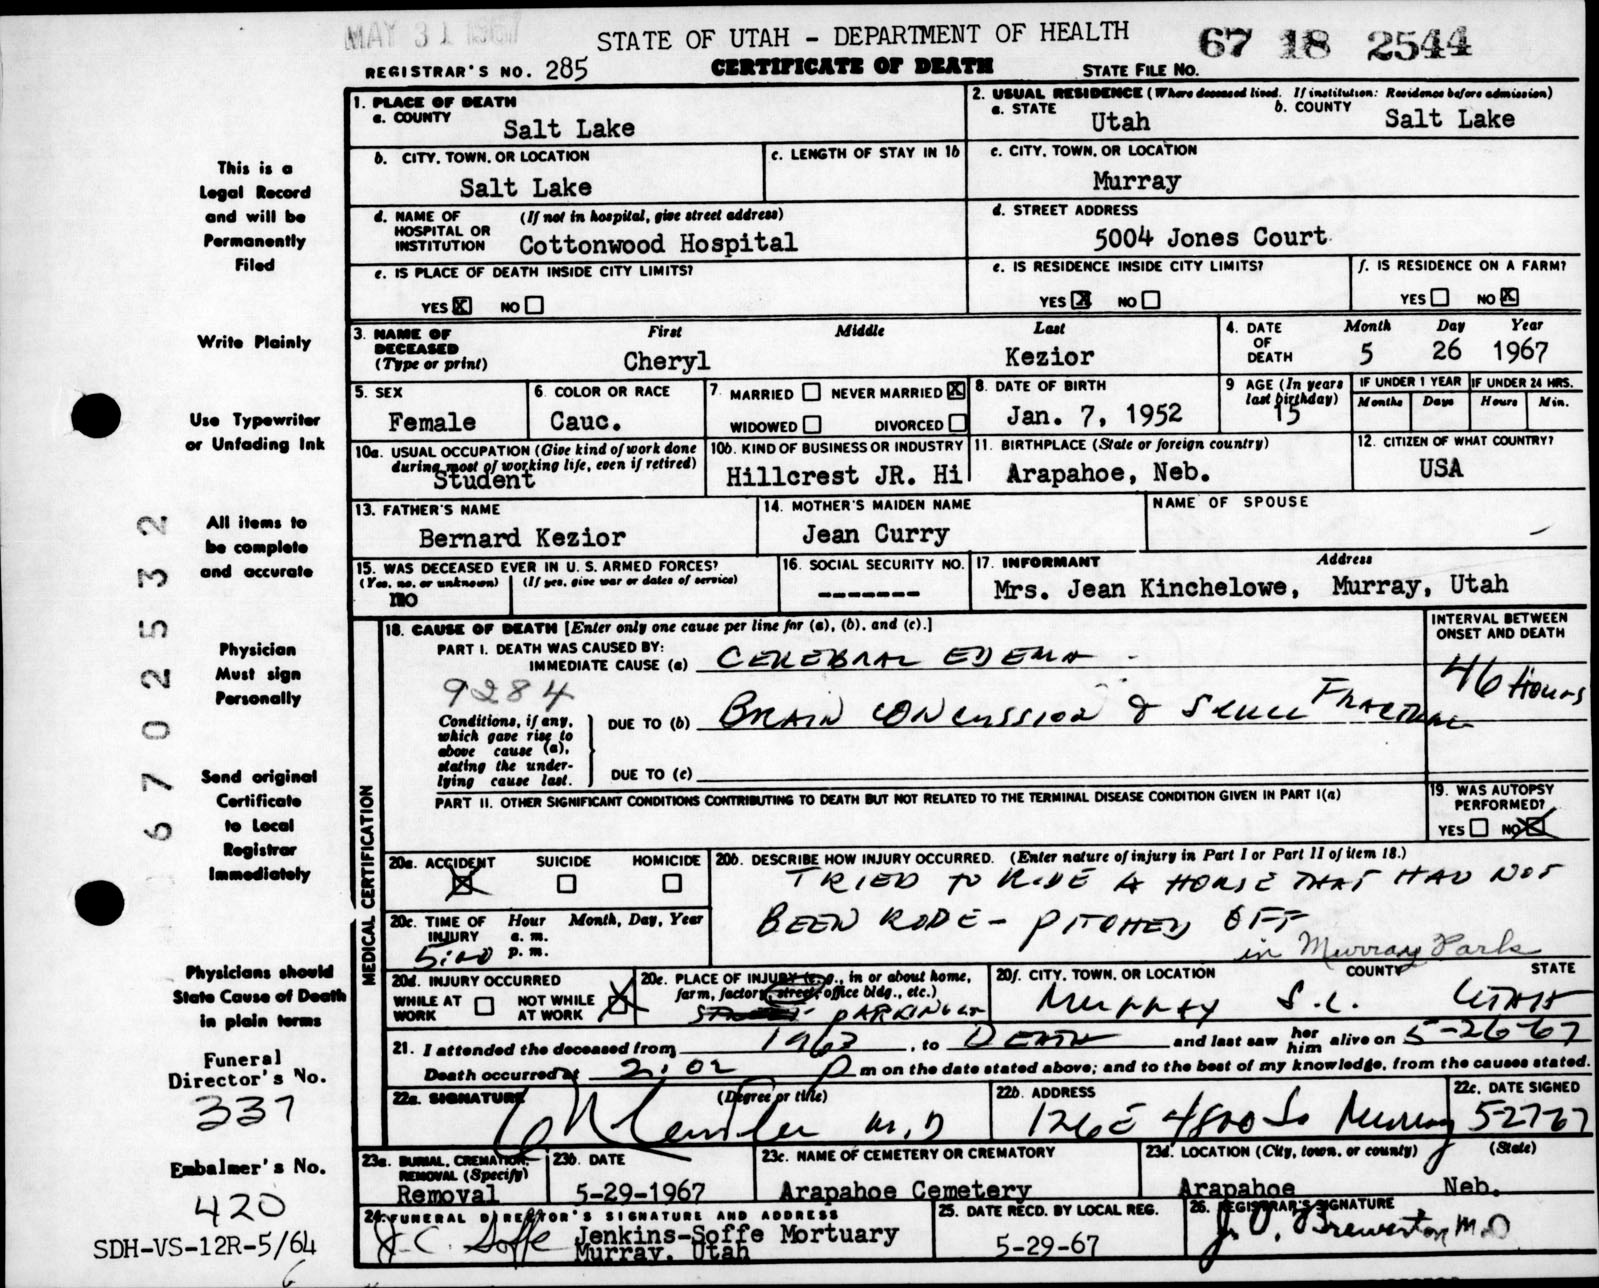 MAY 31 1967
STATE OF UTAH - DEPARTMENT OF HEALTH
67 18 2544
REGISTRAR'S NO. 285
CERTIFICATE OF DEATH
STATE FILE NO.
1. PLACE OF DEATH
a. COUNTY
Salt Lake
2. USUAL RESIDENCE (Where deceased lived. If institution: Residence before admission)
a. STATE
Utah
b. COUNTY
Salt Lake
b. CITY, TOWN, OR LOCATION
Salt Lake
c. LENGTH OF STAY IN 1b
c. CITY, TOWN, OR LOCATION
Murray
d. NAME OF HOSPITAL OR INSTITUTION
(If not in hospital, give street address)
Cottonwood Hospital
d. STREET ADDRESS
5004 Jones Court
e. IS PLACE OF DEATH INSIDE CITY LIMITS?
YES X NO
e. IS RESIDENCE INSIDE CITY LIMITS?
YES X NO
f. IS RESIDENCE ON A FARM?
YES NO X
3. NAME OF DECEASED
(Type or print)
First Middle Last
Cheryl Kezior
4. DATE OF DEATH
Month Day Year
5 26 1967
5. SEX
Female
6. COLOR OR RACE
Cauc.
7. MARRIED NEVER MARRIED X
WIDOWED DIVORCED
8. DATE OF BIRTH
Jan. 7, 1952
9 AGE (In years last birthday)
15
IF UNDER 1 YEAR
Months Days
IF UNDER 24 HRS.
Hours Min.
10a. USUAL OCCUPATION (Give kind of work done
during most of working life, even if retired)
Student
10b. KIND OF BUSINESS OR INDUSTRY
Hillcrest JR. Hi
11. BIRTHPLACE (State or foreign country)
Arapahoe, Neb.
12. CITIZEN OF WHAT COUNTRY?
USA
13. FATHER'S NAME
Bernard Kezior
14. MOTHER'S MAIDEN NAME
Jean Curry
NAME OF SPOUSE
15. WAS DECEASED EVER IN U. S. ARMED FORCES?
(Yes, no, or unknown) (If yes, give war or dates of service)
no
16. SOCIAL SECURITY NO.
-------
17. INFORMANT Address
Mrs. Jean Kinchelowe, Murray, Utah
MEDICAL CERTIFICATION
18. CAUSE OF DEATH [Enter only one cause per line for (a), (b), and (c).]
INTERVAL BETWEEN ONSET AND DEATH
PART I. DEATH WAS CAUSED BY:
IMMEDIATE CAUSE (a) CEREBRAL EDEMA
46 Hours
9284
Conditions, if any, which gave rise to above cause (a), stating the underlying cause last.
DUE TO (b) BRAIN CONCUSSION & SKULL FRACTURE
DUE TO (c)
PART II. OTHER SIGNIFICANT CONDITIONS CONTRIBUTING TO DEATH BUT NOT RELATED TO THE TERMINAL DISEASE CONDITION GIVEN IN PART I(a)
19. WAS AUTOPSY PERFORMED?
YES NO X
20a. ACCIDENT SUICIDE HOMICIDE
X
20b. DESCRIBE HOW INJURY OCCURRED. (Enter nature of injury in Part I or Part II of item 18.)
TRIED TO RIDE A HORSE THAT HAD NOT
BEEN RODE - PITCHED OFF
in Murray Park
20c. TIME OF INJURY
Hour Month, Day, Year
a. m.
5:00 p. m.
20d. INJURY OCCURRED
WHILE AT WORK NOT WHILE AT WORK X
20e. PLACE OF INJURY (e. g., in or about home,
farm, factory, street, office bldg., etc.)
STREET PARKING LOT
20f. CITY, TOWN, OR LOCATION COUNTY STATE
MURRAY S.L. UTAH
21. I attended the deceased from 1963, to DEATH and last saw her him alive on 5-26-67
Death occurred at 2:02 P m on the date stated above; and to the best of my knowledge, from the causes stated.
22a. SIGNATURE (Degree or title)
M.D
22b. ADDRESS
126 E 4800 So Murray
22c. DATE SIGNED
5-27-67
23a. BURIAL, CREMATION, REMOVAL (Specify)
Removal
23b. DATE
5-29-1967
23c. NAME OF CEMETERY OR CREMATORY
Arapahoe Cemetery
23d. LOCATION (City, town, or county) (State)
Arapahoe Neb.
24. FUNERAL DIRECTOR'S SIGNATURE AND ADDRESS
J. C. Soffe Jenkins-Soffe Mortuary
Murray, Utah
25. DATE RECD. BY LOCAL REG.
5-29-67
26. REGISTRAR'S SIGNATURE
J. O. Brewerton M.D
This is a
Legal Record
and will be
Permanently
Filed
Write Plainly
Use Typewriter
or Unfading Ink
All items to
be complete
and accurate
Physician
Must sign
Personally
Send original
Certificate
to Local
Registrar
Immediately
Physicians should
State Cause of Death
in plain terms
Funeral
Director's No.
337
Embalmer's No.
420
SDH-VS-12R-5/64
6702532